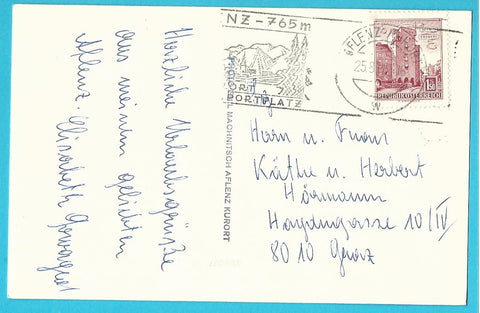 Herzliche Urlaubsgrüße
aus meinem geliebten
Aflenz.
Elisabeth
NZ - 765m
ORT
PORTPLATZ
AFLENZ
25.8
REPUBLIK ÖSTERREICH
MACHNITSCH AFLENZ KURORT
Herrn u. Frau
Käthe u. Herbert
Hörmann
Haydngasse 10/IV
8010 Graz